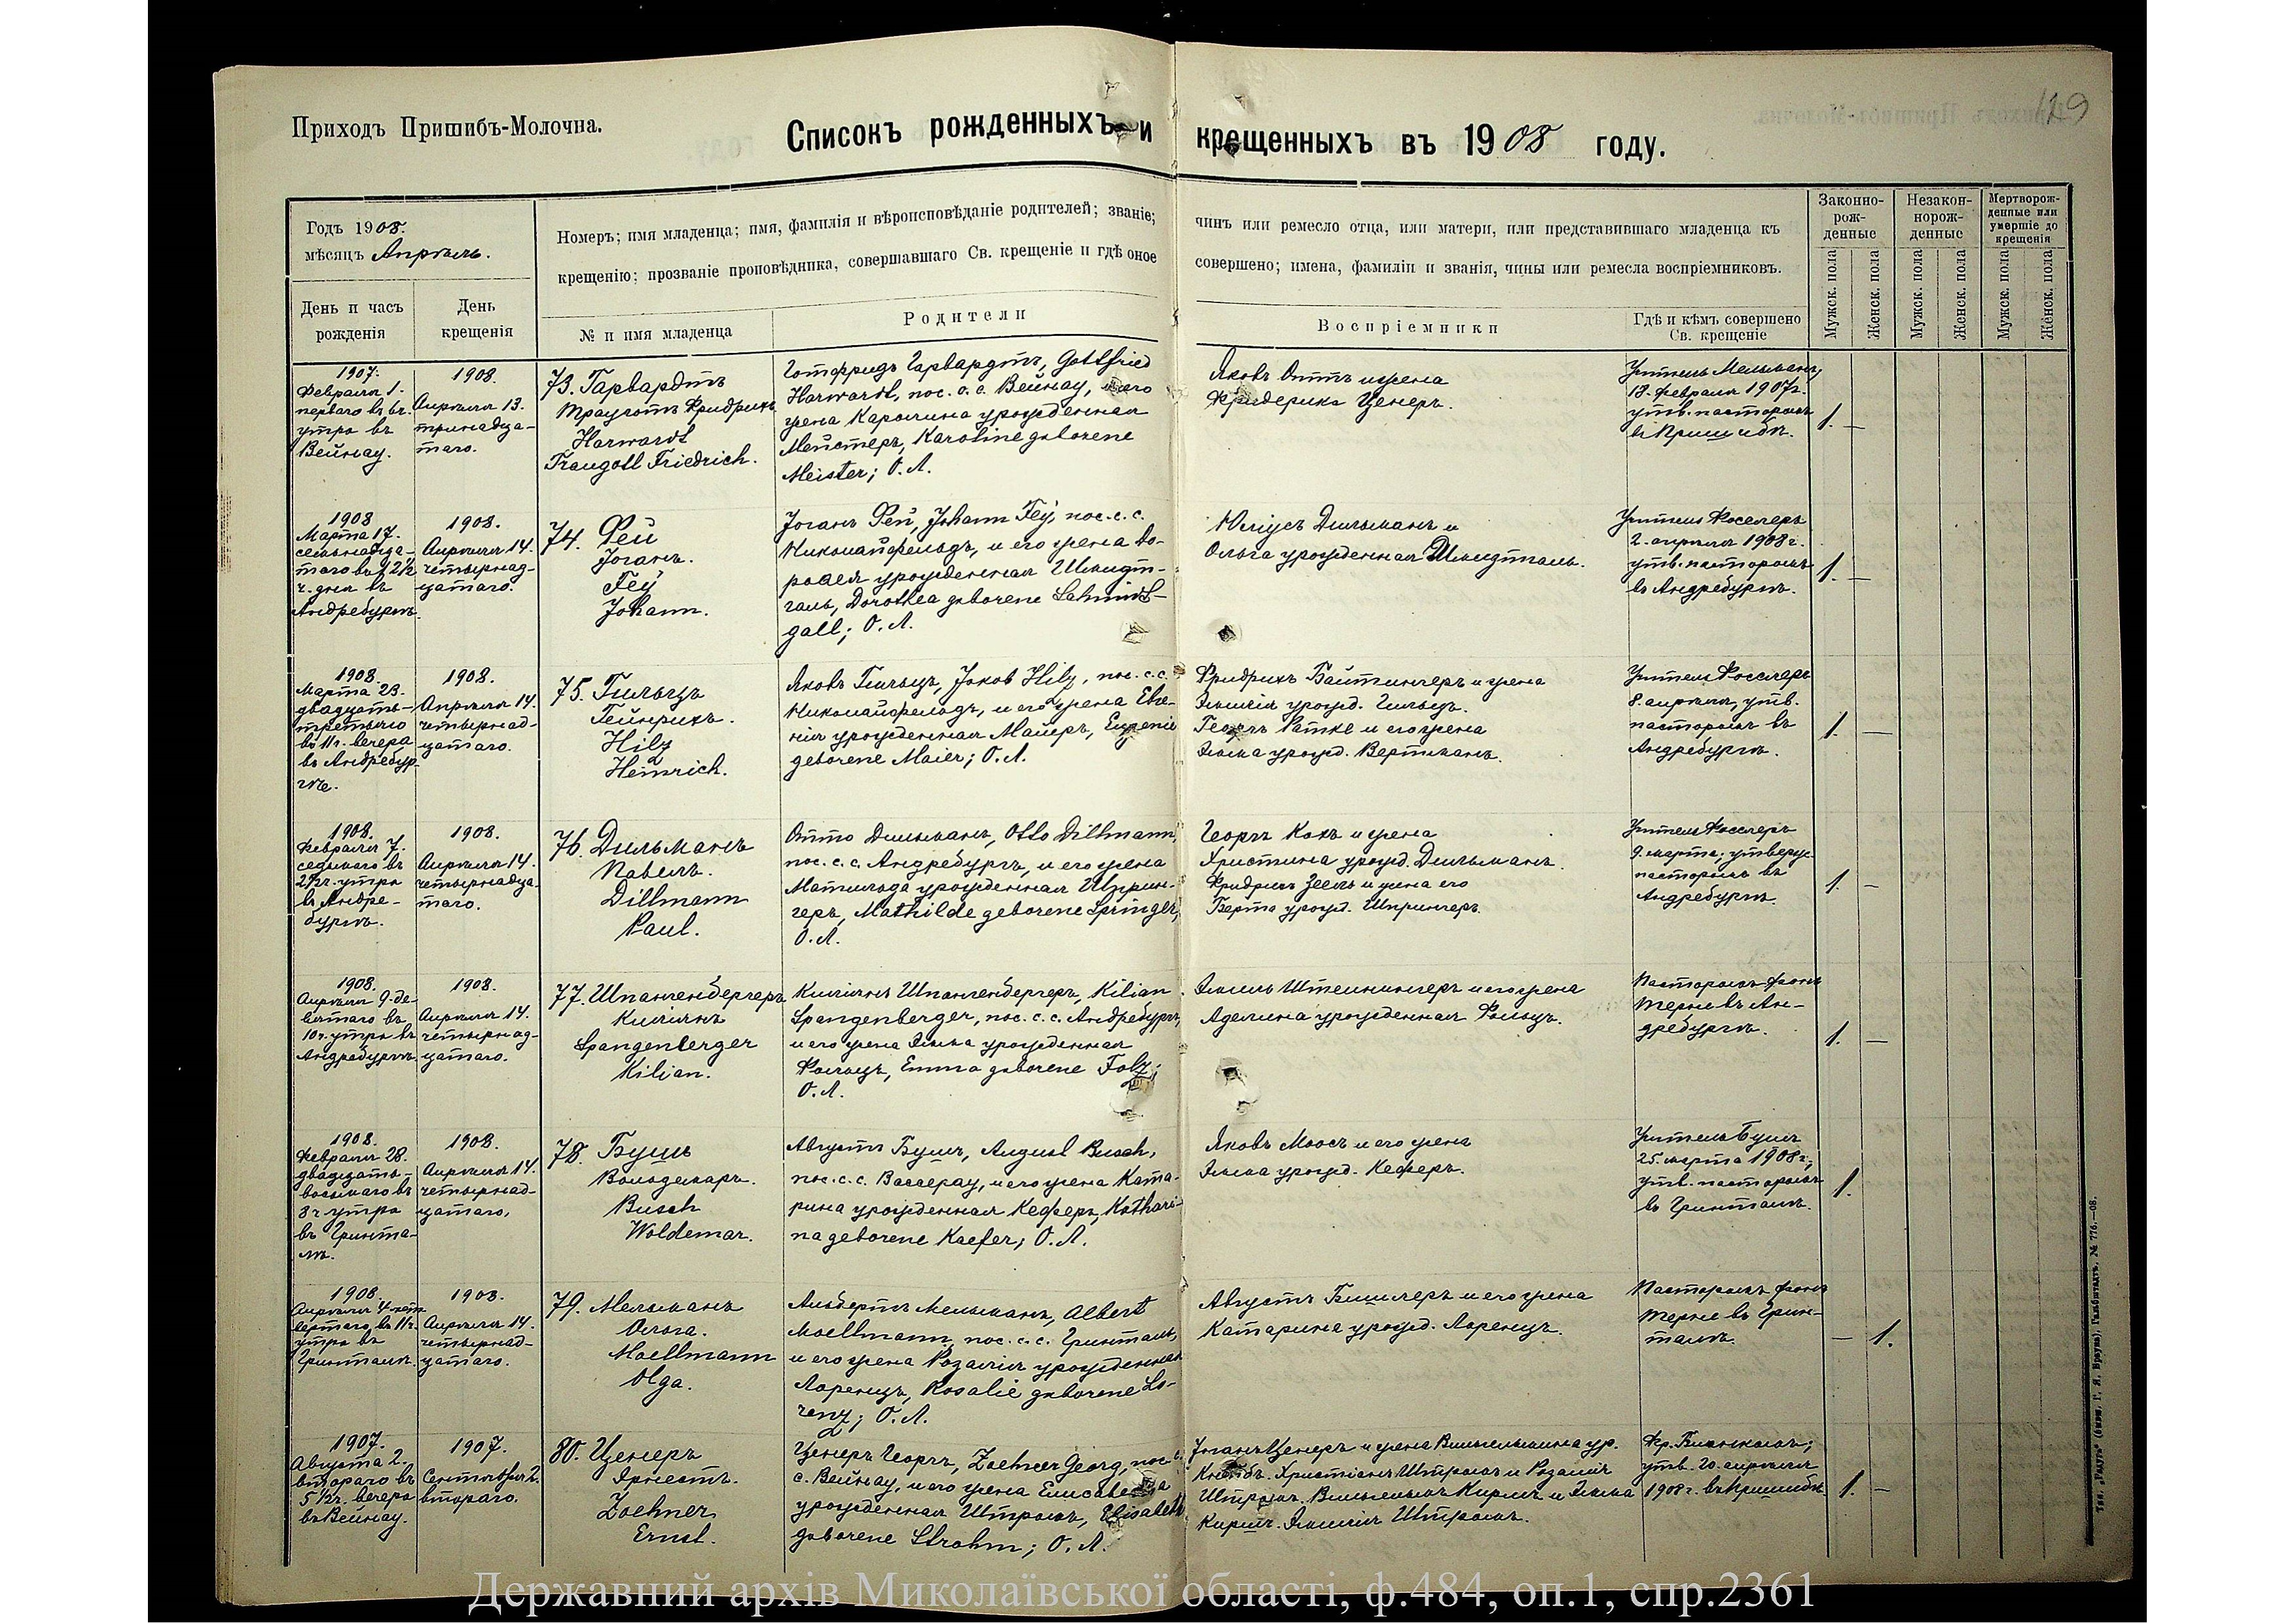 129
Приходъ Пришибъ-Молочна.
Списокъ рожденныхъ и крещенныхъ въ 1908 году.
Годъ 1908.
мѣсяцъ Апрѣль.
Номеръ; имя младенца; имя, фамилія и вѣроисповѣданіе родителей; званіе; чинъ или ремесло отца, или матери, или представившаго младенца къ
крещенію; прозваніе проповѣдника, совершавшаго Св. крещеніе и гдѣ оное совершено; имена, фамиліи и званія, чины или ремесла воспріемниковъ.
День и часъ
рожденія
День
крещенія
№ и имя младенца
Родители
Воспріемники
Гдѣ и кѣмъ совершено
Св. крещеніе
Законно-
рож-
денные
Незакон-
норож-
денные
Мертворож-
денные или
умершіе до
крещенія
Мужск. пола
Женск. пола
Мужск. пола
Женск. пола
Мужск. пола
Женск. пола
1907.
Февраля 1.
перваго въ 6 ч.
утра въ
Вейнау.
1908.
Апрѣля 13.
тринадца-
таго.
73. Гарвардтъ
Трауготъ Фридрихъ
Harwardt
Traugott Friedrich.
Готфридъ Гарвардтъ, Gottfried
Harwardt, пос. с. с. Вейнау, и его
жена Каролина урожденная
Мейстеръ, Karoline geborene
Meister; О. Л.
Яковъ Оттъ и жена
Фридерика Ценеръ.
Учитель Мельманъ,
18. февраля 1907 г.
утв. пасторомъ
въ Пришибѣ.
1. —
1908
Марта 17.
семьнадца-
таго въ 12½
ч. дня въ
Андребургѣ.
1908.
Апрѣля 14.
четырнад-
цатаго.
74. Фей
Іоганъ.
Fey
Johann.
Іоганъ Фей, Johann Fey, пос. с. с.
Николайфельдъ, и его жена До-
ротея урожденная Шмидт-
галь, Dorothea geborene Schmidt-
gall; О. Л.
Юліусъ Дильманъ и
Ольга урожденная Шмидтгаль.
Учитель Фосслеръ
2. апрѣля 1908 г.
утв. пасторомъ
въ Андребургѣ.
1. —
1908.
Марта 23.
двадцать-
третьяго
въ 11 ч. вечера
въ Андребур-
гѣ.
1908.
Апрѣля 14.
четырнад-
цатаго.
75. Гильцъ
Гейнрихъ.
Hilz
Heinrich.
Яковъ Гильцъ, Jakob Hilz, пос. с. с.
Николайфельдъ, и его жена Евге-
нія урожденная Майеръ, Eugenie
geborene Maier; О. Л.
Фридрихъ Байтингеръ и жена
Эмилія урожд. Гильцъ.
Георгъ Ратке и его жена
Эмма урожд. Вертманъ.
Учитель Фосслеръ
8. апрѣля, утв.
пасторомъ въ
Андребургѣ.
1. —
1908.
Февраля 7.
седьмаго въ
2½ ч. утра
въ Андре-
бургѣ.
1908.
Апрѣля 14.
четырнадца-
таго.
76. Дильманъ
Павелъ.
Dillmann
Paul.
Отто Дильманъ, Otto Dillmann,
пос. с. с. Андребургъ, и его жена
Матильда урожденная Шприн-
геръ, Mathilde geborene Springer;
О. Л.
Георгъ Кохъ и жена
Христина урожд. Дильманъ.
Фридрихъ Зеель и жена его
Берта урожд. Шпрингеръ.
Учитель Фосслеръ
9. марта; утвержд.
пасторомъ въ
Андребургѣ.
1. —
1908.
Апрѣля 9. де-
вятаго въ
10 ч. утра въ
Андребургѣ.
1908.
Апрѣля 14.
четырнад-
цатаго.
77. Шпангенбергеръ
Киліянъ
Spangenberger
Kilian.
Киліянъ Шпангенбергеръ, Kilian
Spangenberger, пос. с. с. Андребургъ,
и его жена Эмма урожденная
Фольцъ, Emma geborene Folz;
О. Л.
Эмиль Штейнингеръ и его жена
Аделина урожденная Фольцъ.
Пасторомъ фонъ
Терне въ Ан-
дребургѣ.
1. —
1908.
Февраля 28.
двадцать-
восьмаго въ
8 ч. утра
въ Гринта-
лѣ.
1908.
Апрѣля 14.
четырнад-
цатаго.
78. Бушъ
Вольдемаръ.
Busch
Woldemar.
Августъ Бушъ, August Busch,
пос. с. с. Вассерау, и его жена Ката-
рина урожденная Кеферъ, Kathari-
na geborene Kaefer; О. Л.
Яковъ Моосъ и его жена
Эмма урожд. Кеферъ.
Учитель Бушъ
25. марта 1908 г.;
утв. пасторомъ
въ Гринталѣ.
1.
1908.
Апрѣля 4. чет-
вертаго въ 11 ч.
утра въ
Гринталѣ.
1908.
Апрѣля 14.
четырнад-
цатаго.
79. Мельманъ
Ольга.
Moellmann
Olga.
Альбертъ Мельманъ, Albert
Moellmann, пос. с. с. Гринталь,
и его жена Розалія урожденная
Лоренцъ, Rosalie geborene Lo-
renz; О. Л.
Августъ Бишлеръ и его жена
Катарина урожд. Лоренцъ.
Пасторомъ фонъ
Терне въ Грин-
талѣ.
— 1.
1907.
Августа 2.
втораго въ
5½ ч. вечера
въ Вейнау.
1907.
Сентября 2.
втораго.
80. Ценеръ
Эрнестъ.
Zoehner
Ernst.
Ценеръ Георгъ, Zoehner Georg, пос. с.
с. Вейнау, и его жена Елисавета
урожденная Штромъ, Elisabeth
geborene Strohm; О. Л.
Іоганъ Ценеръ и жена Вильгельмина ур.
Христіянъ Штромъ и Розалія
Штромъ. Вильгельмъ Киршъ и Эмма
Киршъ. Эмилія Штромъ.
утв. 20. апрѣля
1908 г. въ Пришибѣ.
1. —
Тип. „Радуга“ (бывш. Г. Я. Браунъ). Гальбштадтъ. № 776.—08.
Державний архів Миколаївської області, ф.484, оп.1, спр.2361